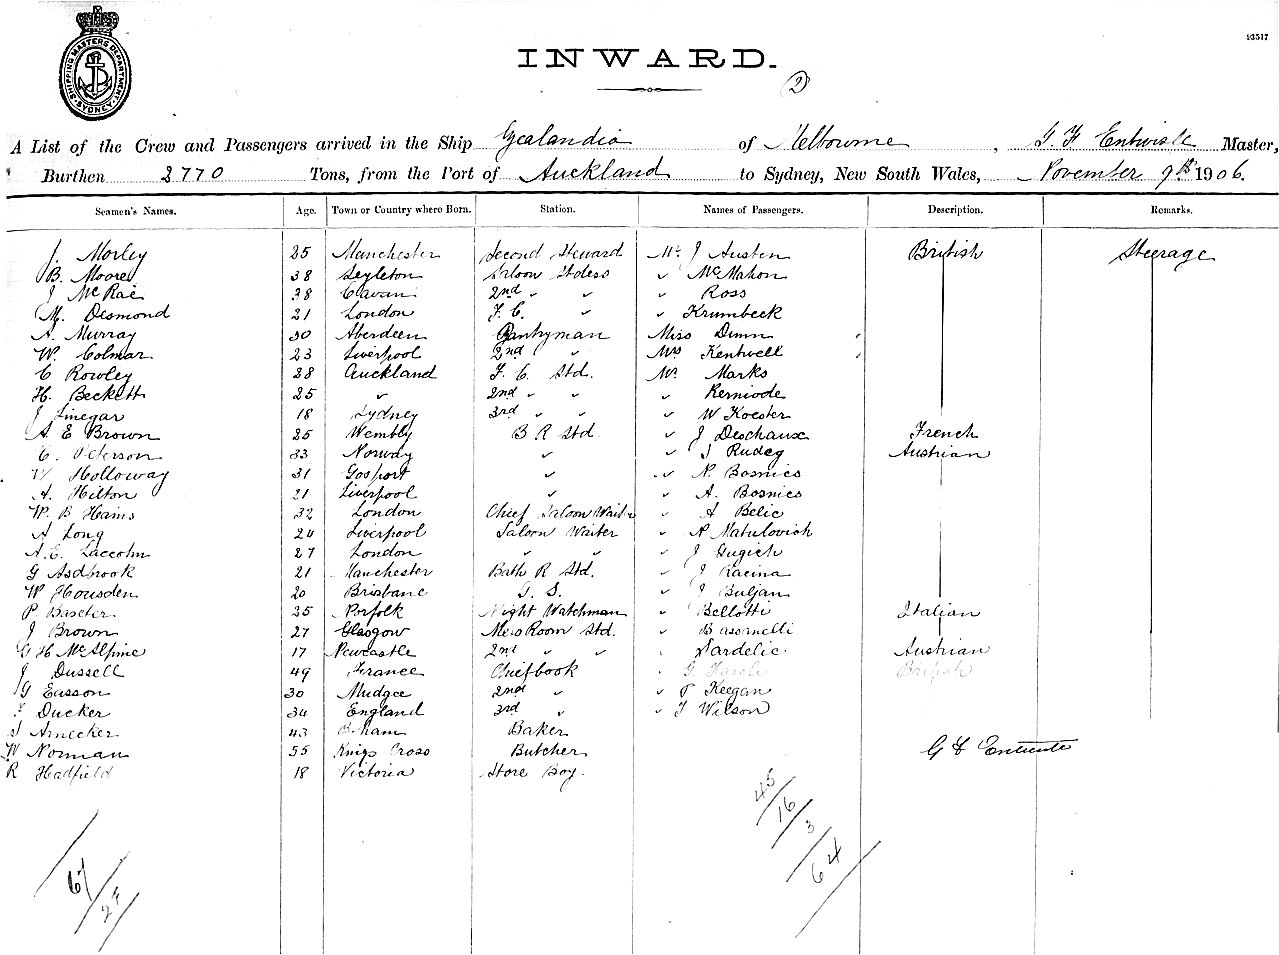 SHIPPING MASTERS DEPARTMENT SYDNEY
93517
INWARD.
(2)
A List of the Crew and Passengers arrived in the Ship Zealandia of Melbourne, G. F. Entwisle Master,
Burthen 2770 Tons, from the Port of Auckland to Sydney, New South Wales, November 9th 1906.
Seamen's Names. Age. Town or Country where Born. Station. Names of Passengers. Description. Remarks.
J. Morley 35 Manchester Second Steward Mr J Austen British Steerage
B. Moore 38 Leyleton Saloon Stdess " McMahon
J McRae 38 Cavan 2nd " " " Ross
M. Desmond 21 London F. C. " " Krumbeck
A. Murray 30 Aberdeen Pantryman Miss Dunn
W. Colmar 23 Liverpool 2nd " Mrs Kentwell
C Rowley 28 Auckland F. C. Std. Mr Marks
H. Beckett 25 " 2nd " " "
J Linegar 18 Sydney 3rd " " " W Koester
A E Brown 25 Wembly B R Std " J Deschaux French
C. Peterson 33 Norway " " J Rudeg Austrian
W Holloway 31 Gosport " " N. Bosnics
A. Hilton 21 Liverpool " " A. Bosnics
W. B Hains 32 London Chief Saloon Waiter " A Belic
A Long 24 Liverpool Saloon Waiter " N Matulovich
A. E. 27 London " " " J
G Asdbrook 21 Manchester Bath R Std. " J Racina
W Housden 20 Brisbane G. S. " J Buljan
P. 35 Norfolk Night Watchman " Bellotti Italian
J Brown 27 Glasgow Mess Room Std. "
G H McAlpine 17 Newcastle 2nd " " " Nardelic Austrian
J Dussell 49 France Chief Cook " G British
G Easson 30 Mudgee 2nd " " T Keegan
F Ducker 34 England 3rd " " T Wilson
S Arnecker 43 B.ham Baker
W Norman 55 Kings Cross Butcher G F Entwisle
R Hadfield 18 Victoria Store Boy.
45
16
3
64
61
27